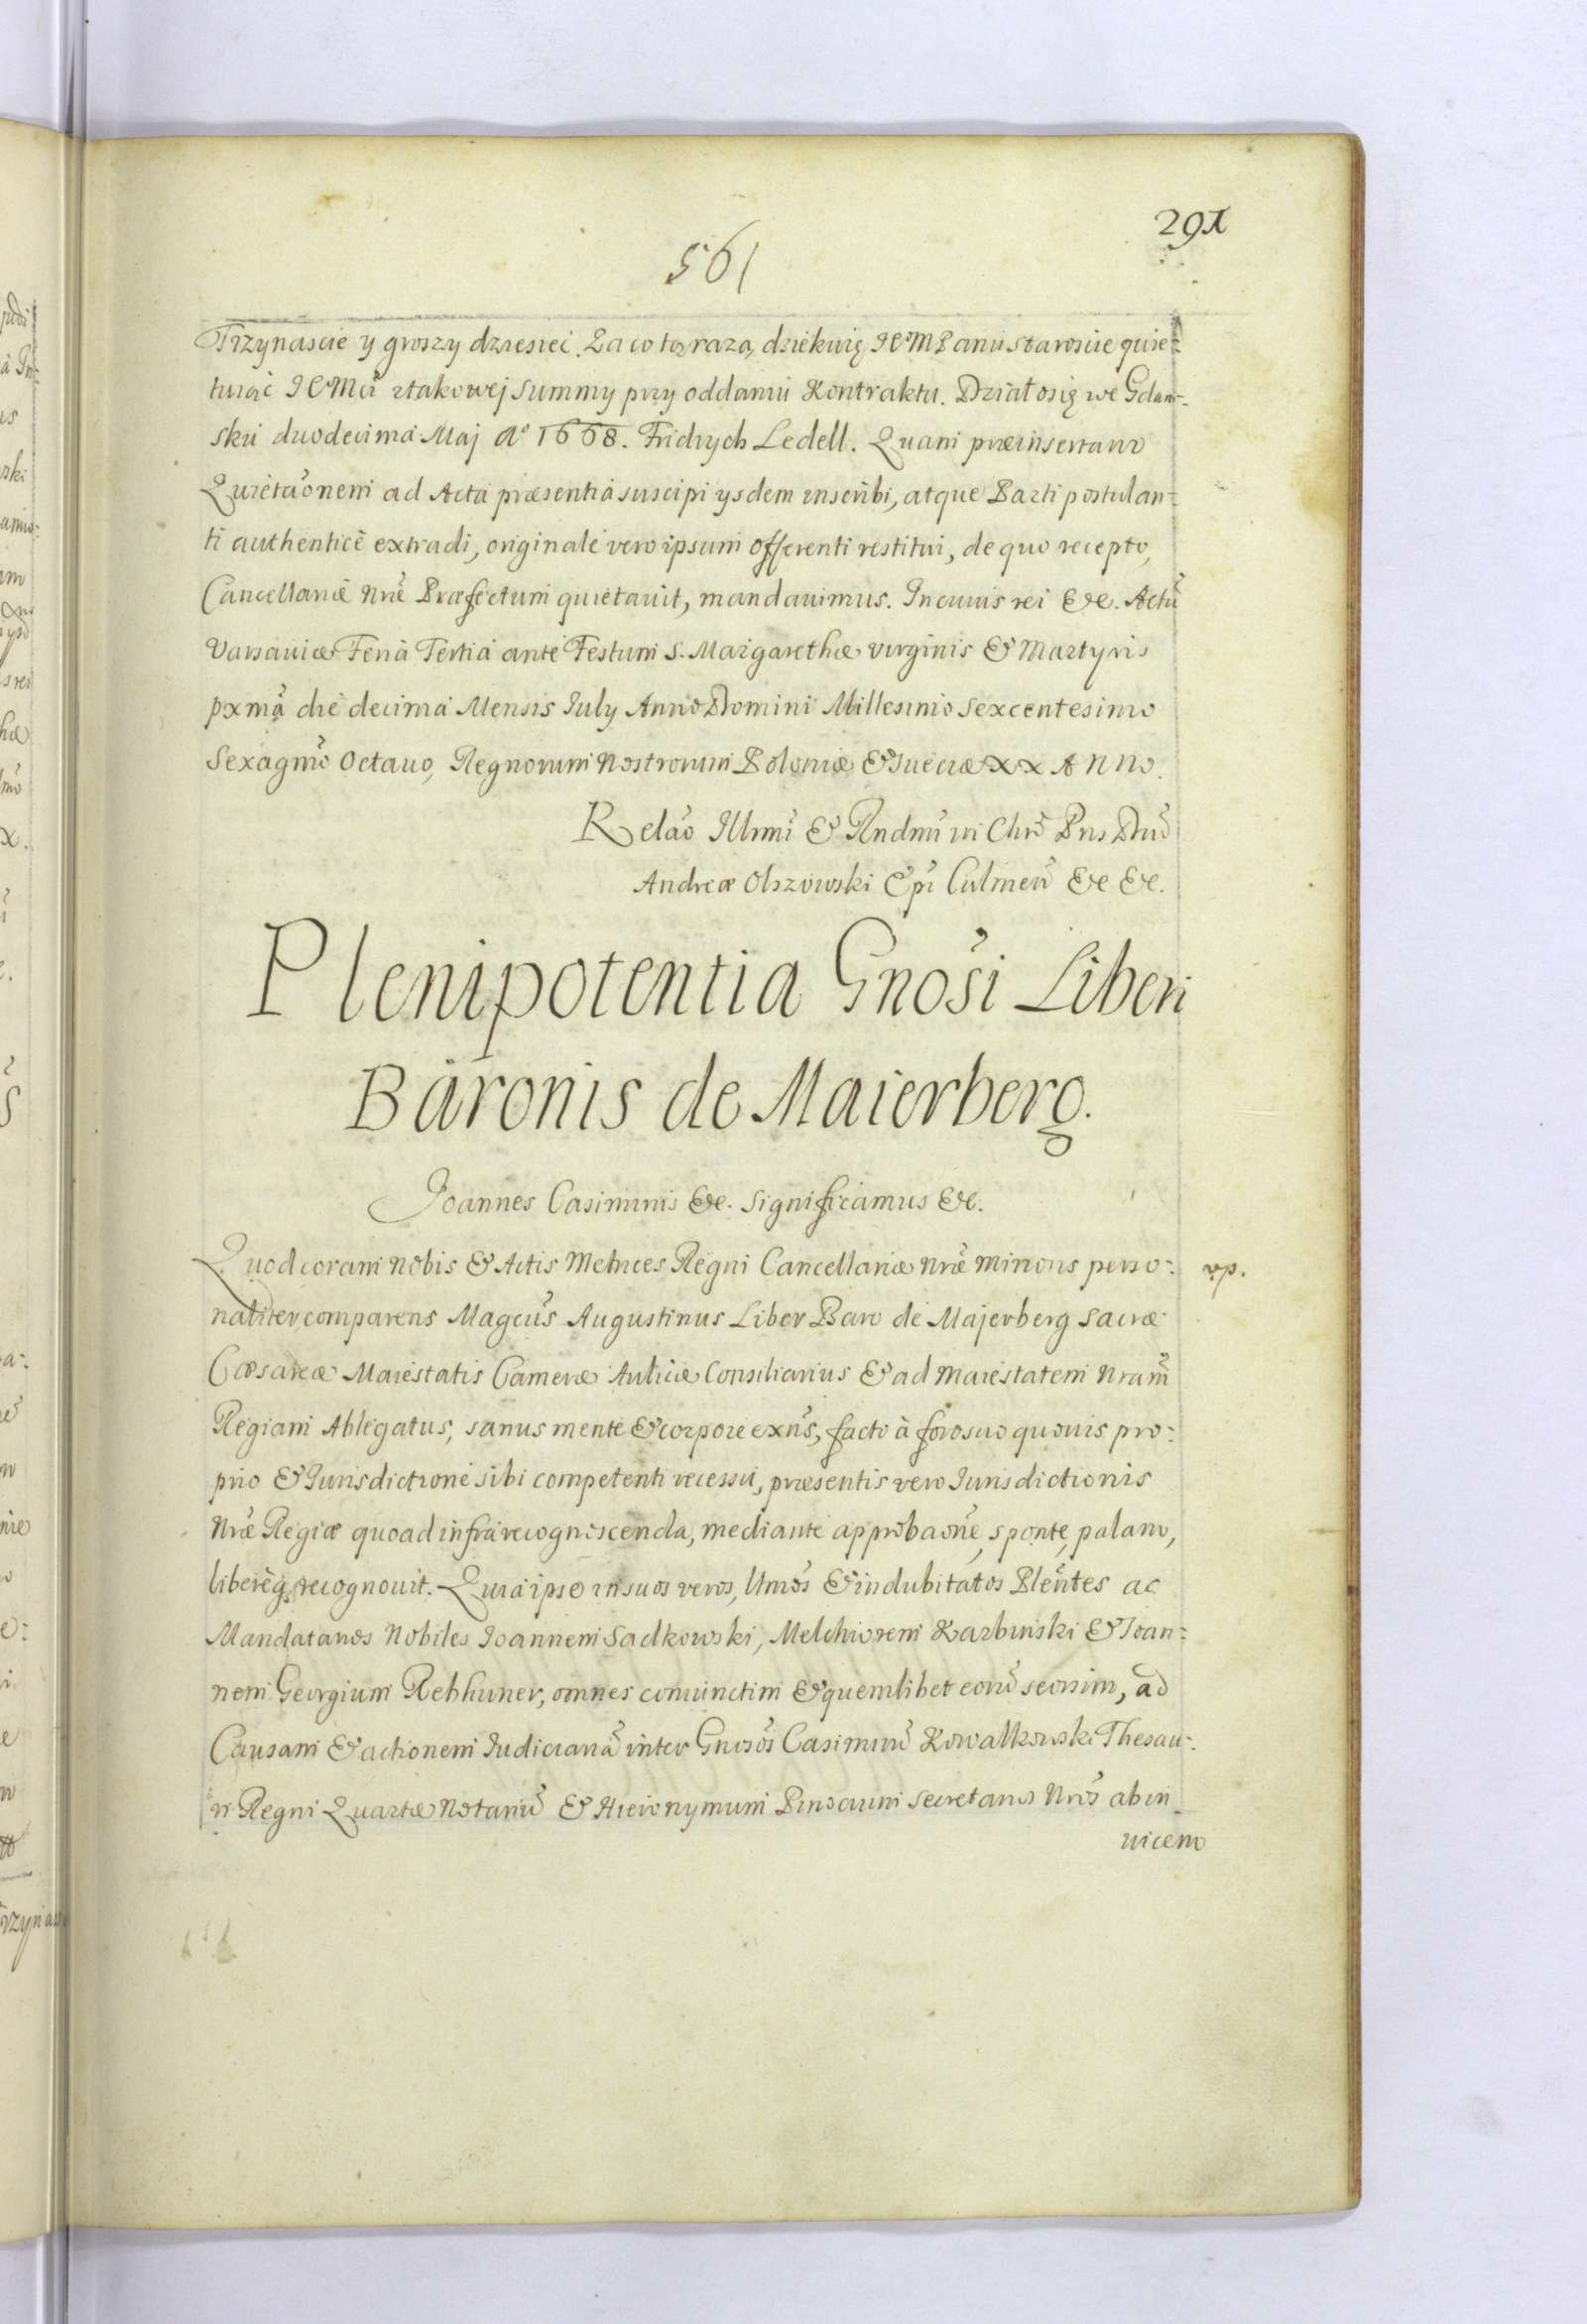 291
561
Trzynascie y groszy dziesięć. Za co tą razą, dziekuię JEMPanu Staroscie quie-
tuiąc JEMci z takowej Summy przy oddaniu Kontraktu. Działosię we Gdan-
sku duodecima Maj Aº 1668. Fridrych Ledell. Quam præinsertam
Quietaõnem ad Acta præsentia suscipi ysdem inscribi, atque Parti postulan-
ti authenticè extradi, originale vero ipsum offerenti restitui, de quo recepto,
Cancellariæ Nrẽ Præfectum quietavit, mandavimus. In cuius rei &c. Actũ
Varsaviæ Feria Tertia ante Festum S. Margarethæ Virginis & Martyris
pxmã die decima Mensis July Anno Domini Millesimo Sexcentesimo
Sexagmõ Octavo, Regnorum Nostrorum Poloniæ & Sueciæ XX Anno.
Relaõ Illrmi & Rndmi in Chrõ Pris Dni
Andreæ Olszowski Epi Culmeñ &c &c.
Plenipotentia Gnosi Liberi
Baronis de Maierberg.
Joannes Casimirus &c. Significamus &c.
Quod coram Nobis & Actis Metrices Regni Cancellariæ Nrẽ Minoris perso-
naliter comparens Magcus Augustinus Liber Baro de Majerberg Sacræ
Cæsareæ Maiestatis Cameræ Aulicæ Consiliarius & ad Maiestatem Nram
Regiam Ablegatus, sanus mente & corpore exñs, facto à foro suo quovis pro-
prio & Jurisdictione sibi competenti recessu, præsentis vero Jurisdictionis
Nrẽ Regiæ quoad infra recognoscenda, mediante approbaõne, sponte, palam,
liberèq recognovit. Quia ipse in suos veros, lttmos & indubitatos Pleñtes ac
Mandatarios Nobiles Joannem Sadkowski, Melchiorem Karbinski & Joan-
nem Georgium Rebhuner, omnes coniunctim & quemlibet eorũ seorsim, ad
Causam & actionem Judiciariã inter Gnosos Casimirũ Kowalkowski Thesau-
ri Regni Quartæ Notariũ & Hieronymum Pinocium Secretarios Nros ab in
vicem
vp.